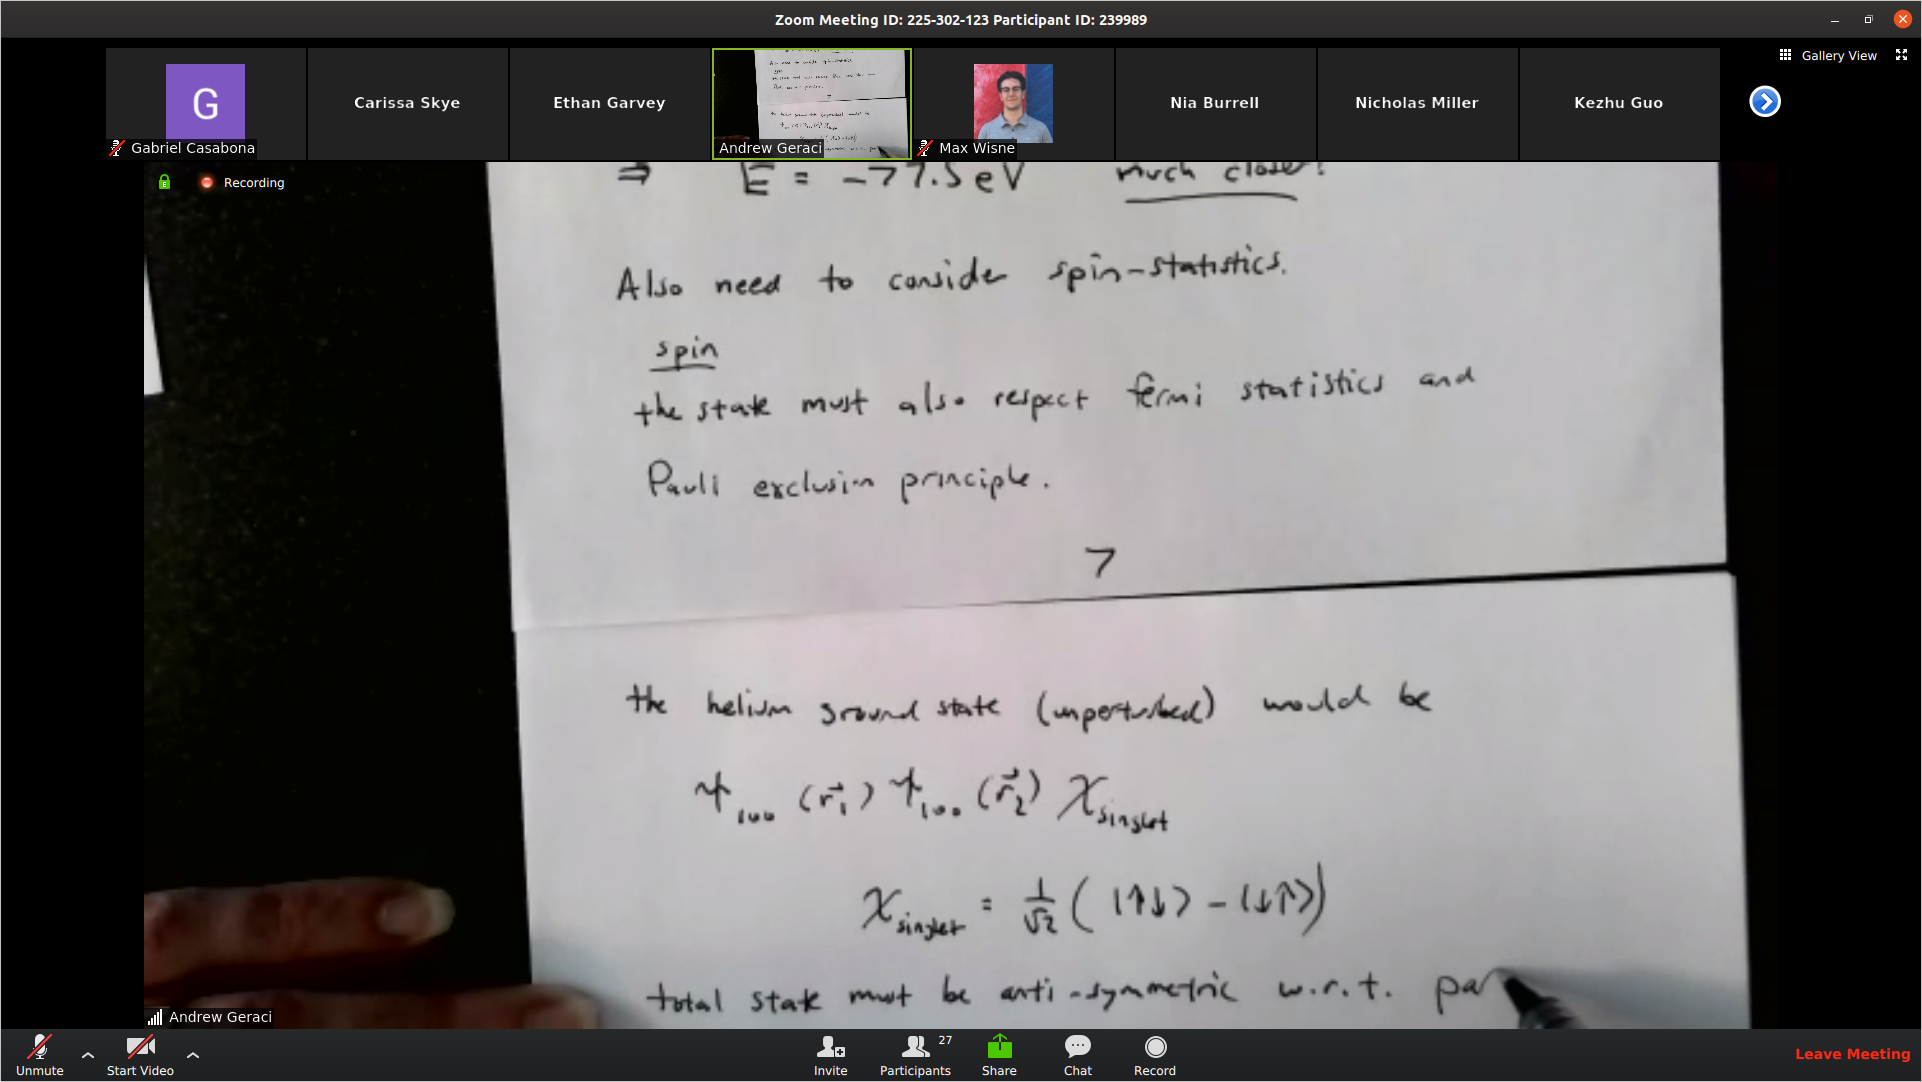 Zoom Meeting ID: 225-302-123 Participant ID: 239989
Gallery View
G
Gabriel Casabona
Carissa Skye
Ethan Garvey
Andrew Geraci
Max Wisne
Nia Burrell
Nicholas Miller
Kezhu Guo
Recording
⇒ E = -77.5 eV much closer!
Also need to consider spin-statistics.
spin
the state must also respect fermi statistics and
Pauli exclusion principle.
7
the helium ground state (unperturbed) would be
ψ₁₀₀ (r⃗₁) ψ₁₀₀ (r⃗₂) χsinglet
χsinglet = 1/√2 ( |↑↓⟩ - |↓↑⟩)
total state must be anti-symmetric w.r.t. pa
Andrew Geraci
Unmute
Start Video
Invite
27
Participants
Share
Chat
Record
Leave Meeting